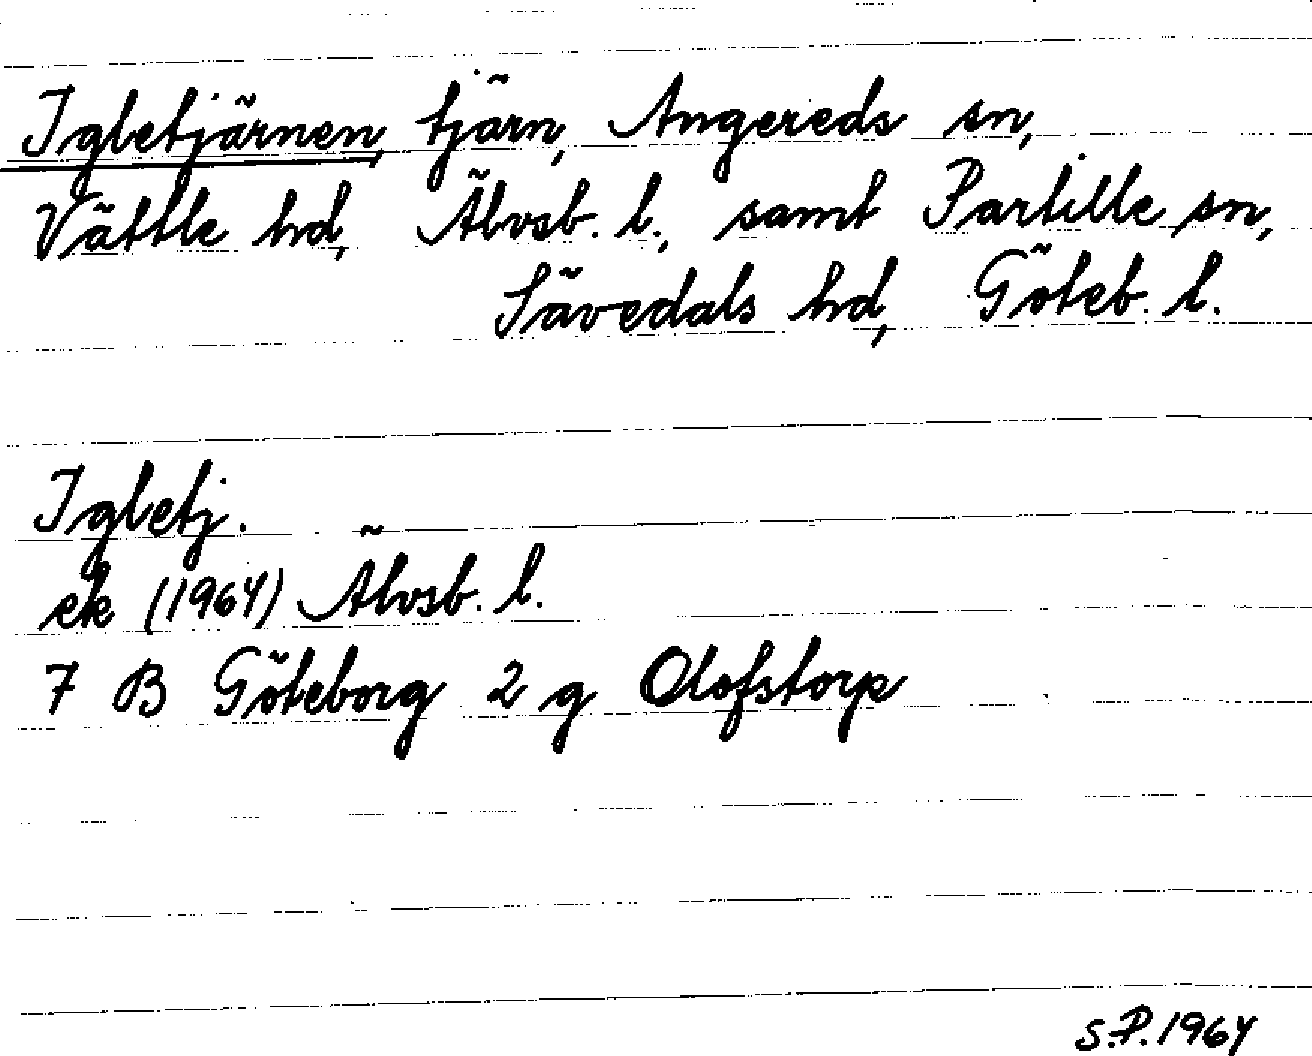 Igletjärnen, tjärn, Angereds sn,
Vättle hd, Älvsb. l., samt Partille sn,
Sävedals hd, Göteb. l.
Igletj.
ek (1964) Älvsb. l.
7 B Göteborg 2 g Olofstorp
S.P. 1964